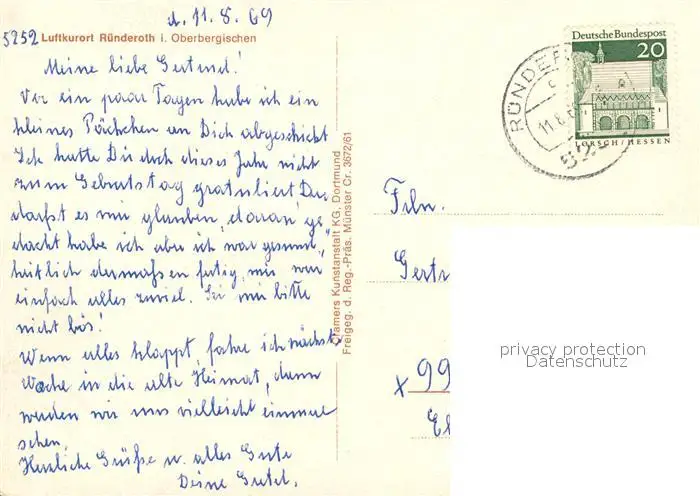 d. 11.8.69
5252 Luftkurort Ründeroth i. Oberbergischen
Meine liebe Gertrud!
Vor ein paar Tagen habe ich ein
kleines Päckchen an Dich abgeschickt
Ich hatte Dir doch dieses Jahr nicht
zum Geburtstag gratuliert Du
darfst es mir glauben, daran ge
dacht habe ich aber ich war gesund
heitlich dermaßen fertig, mir war
einfach alles zuviel. Sei mir bitte
nicht bös!
Wenn alles klappt, fahre ich nächste
Woche in die alte Heimat, dann
werden wir uns vielleicht einmal
sehen.
Herzliche Grüße u. alles Gute
Deine Gretel.
Cramers Kunstanstalt KG, Dortmund
Freigeg. d. Reg.-Präs. Münster Cr. 3672/61
Deutsche Bundespost
20
LORSCH/HESSEN
RÜNDER
11.8.6
52
Frln.
Gertr
x 99
privacy protection
Datenschutz